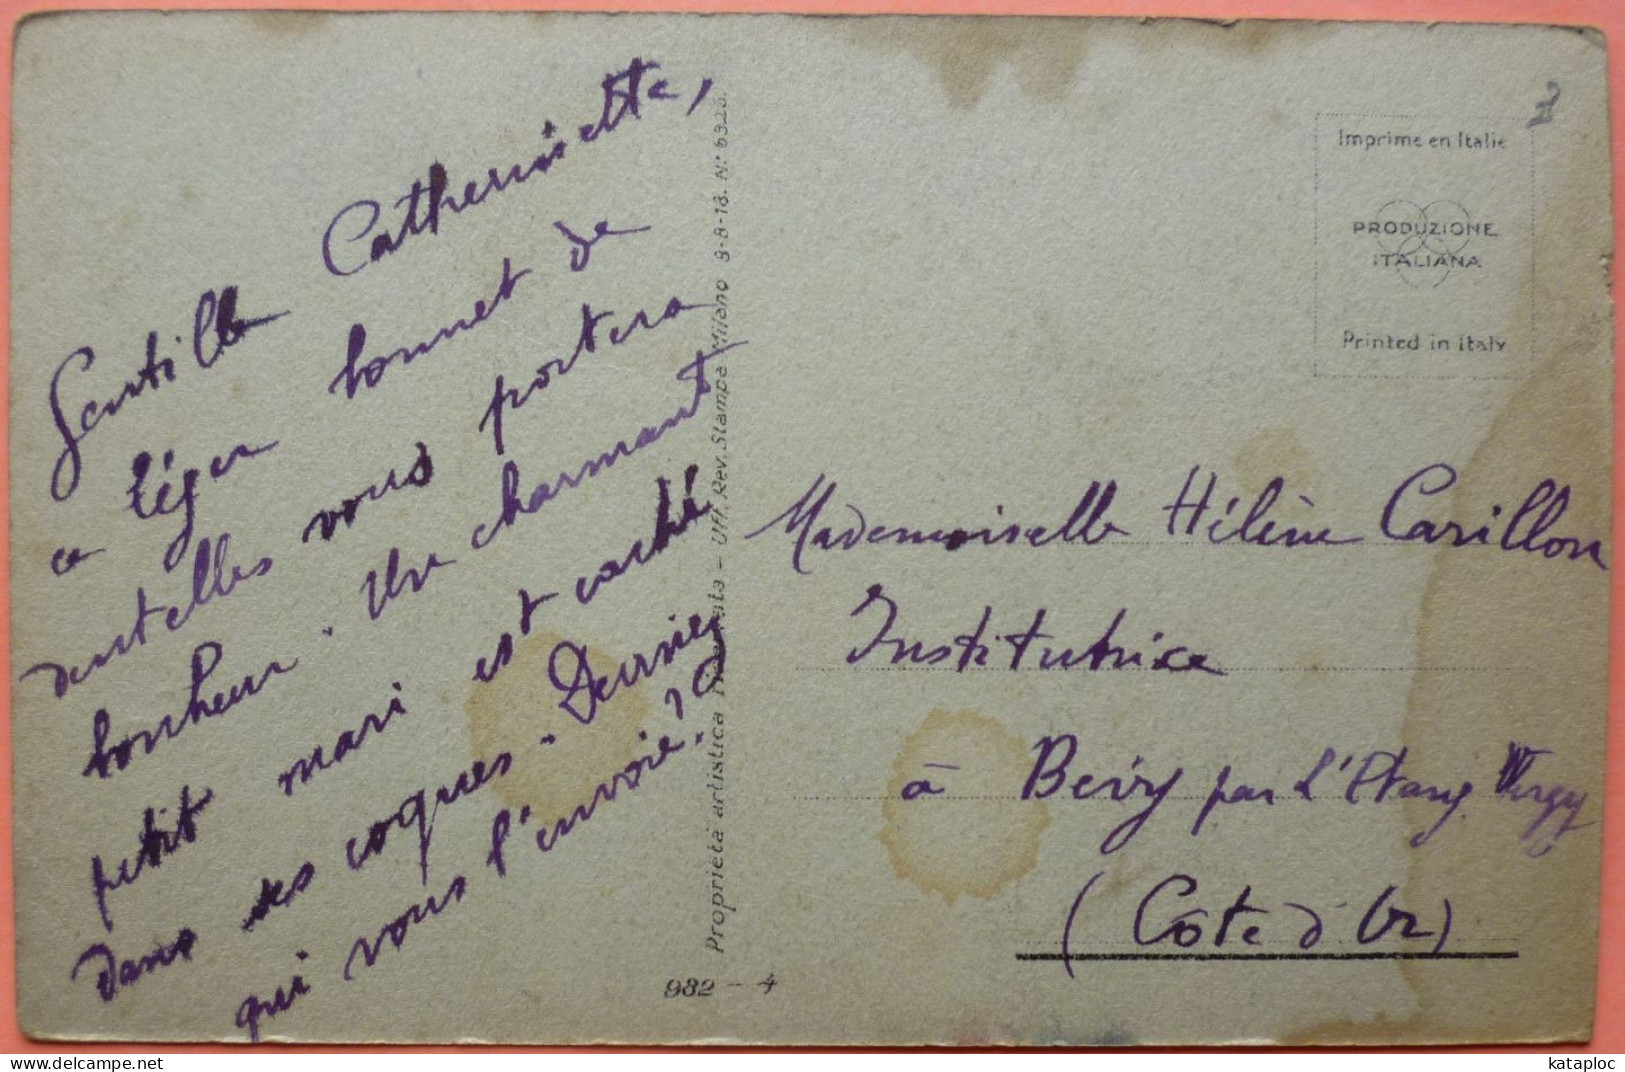 Gentille Catherinette,
ce léger bonnet de
dentelles vous portera
bonheur. Un charmant
petit mari est caché
dans ses coques. Devinez
qui vous l'envoie!?
Proprietà artistica - Uff. Rev. Stampa Milano 8-8-18. N:
932 - 4
Imprime en Italie
PRODUZIONE
ITALIANA
Printed in Italy
Mademoiselle Hélène Carillon
Institutrice
à Bévy par L'Etang Vergy
(Côte d'Or)
kataploc